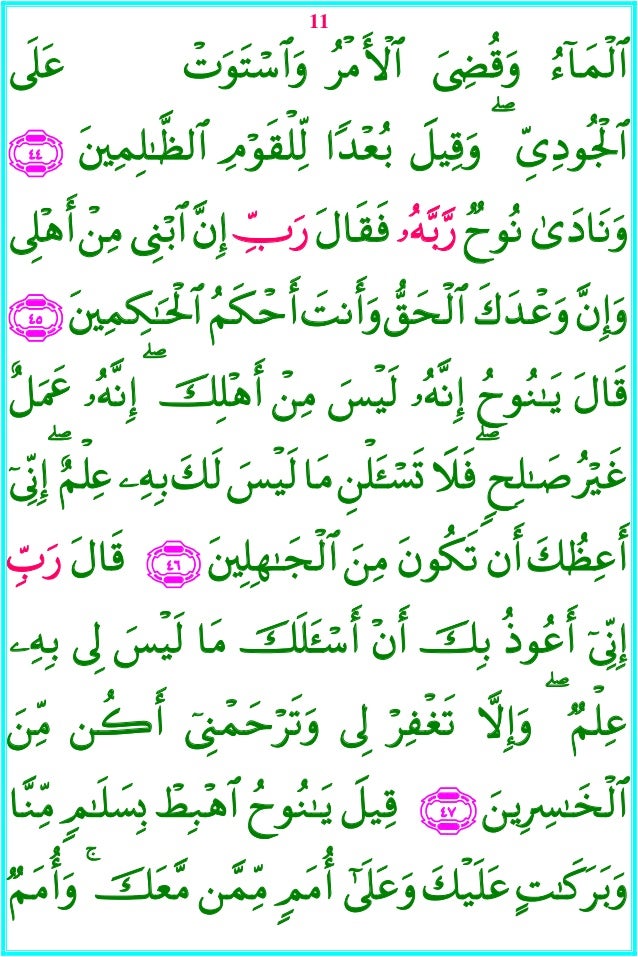 11
ٱلْمَآءُ وَقُضِىَ ٱلْأَمْرُ وَٱسْتَوَتْ عَلَى
ٱلْجُودِىِّ ۖ وَقِيلَ بُعْدًا لِّلْقَوْمِ ٱلظَّـٰلِمِينَ ٤٤
وَنَادَىٰ نُوحٌ رَّبَّهُۥ فَقَالَ رَبِّ إِنَّ ٱبْنِى مِنْ أَهْلِى
وَإِنَّ وَعْدَكَ ٱلْحَقُّ وَأَنتَ أَحْكَمُ ٱلْحَـٰكِمِينَ ٤٥
قَالَ يَـٰنُوحُ إِنَّهُۥ لَيْسَ مِنْ أَهْلِكَ ۖ إِنَّهُۥ عَمَلٌ
غَيْرُ صَـٰلِحٍ ۖ فَلَا تَسْـَٔلْنِ مَا لَيْسَ لَكَ بِهِۦ عِلْمٌ ۖ إِنِّىٓ
أَعِظُكَ أَن تَكُونَ مِنَ ٱلْجَـٰهِلِينَ ٤٦ قَالَ رَبِّ
إِنِّىٓ أَعُوذُ بِكَ أَنْ أَسْـَٔلَكَ مَا لَيْسَ لِى بِهِۦ
عِلْمٌ ۖ وَإِلَّا تَغْفِرْ لِى وَتَرْحَمْنِىٓ أَكُن مِّنَ
ٱلْخَـٰسِرِينَ ٤٧ قِيلَ يَـٰنُوحُ ٱهْبِطْ بِسَلَـٰمٍ مِّنَّا
وَبَرَكَـٰتٍ عَلَيْكَ وَعَلَىٰٓ أُمَمٍ مِّمَّن مَّعَكَ ۚ وَأُمَمٌ